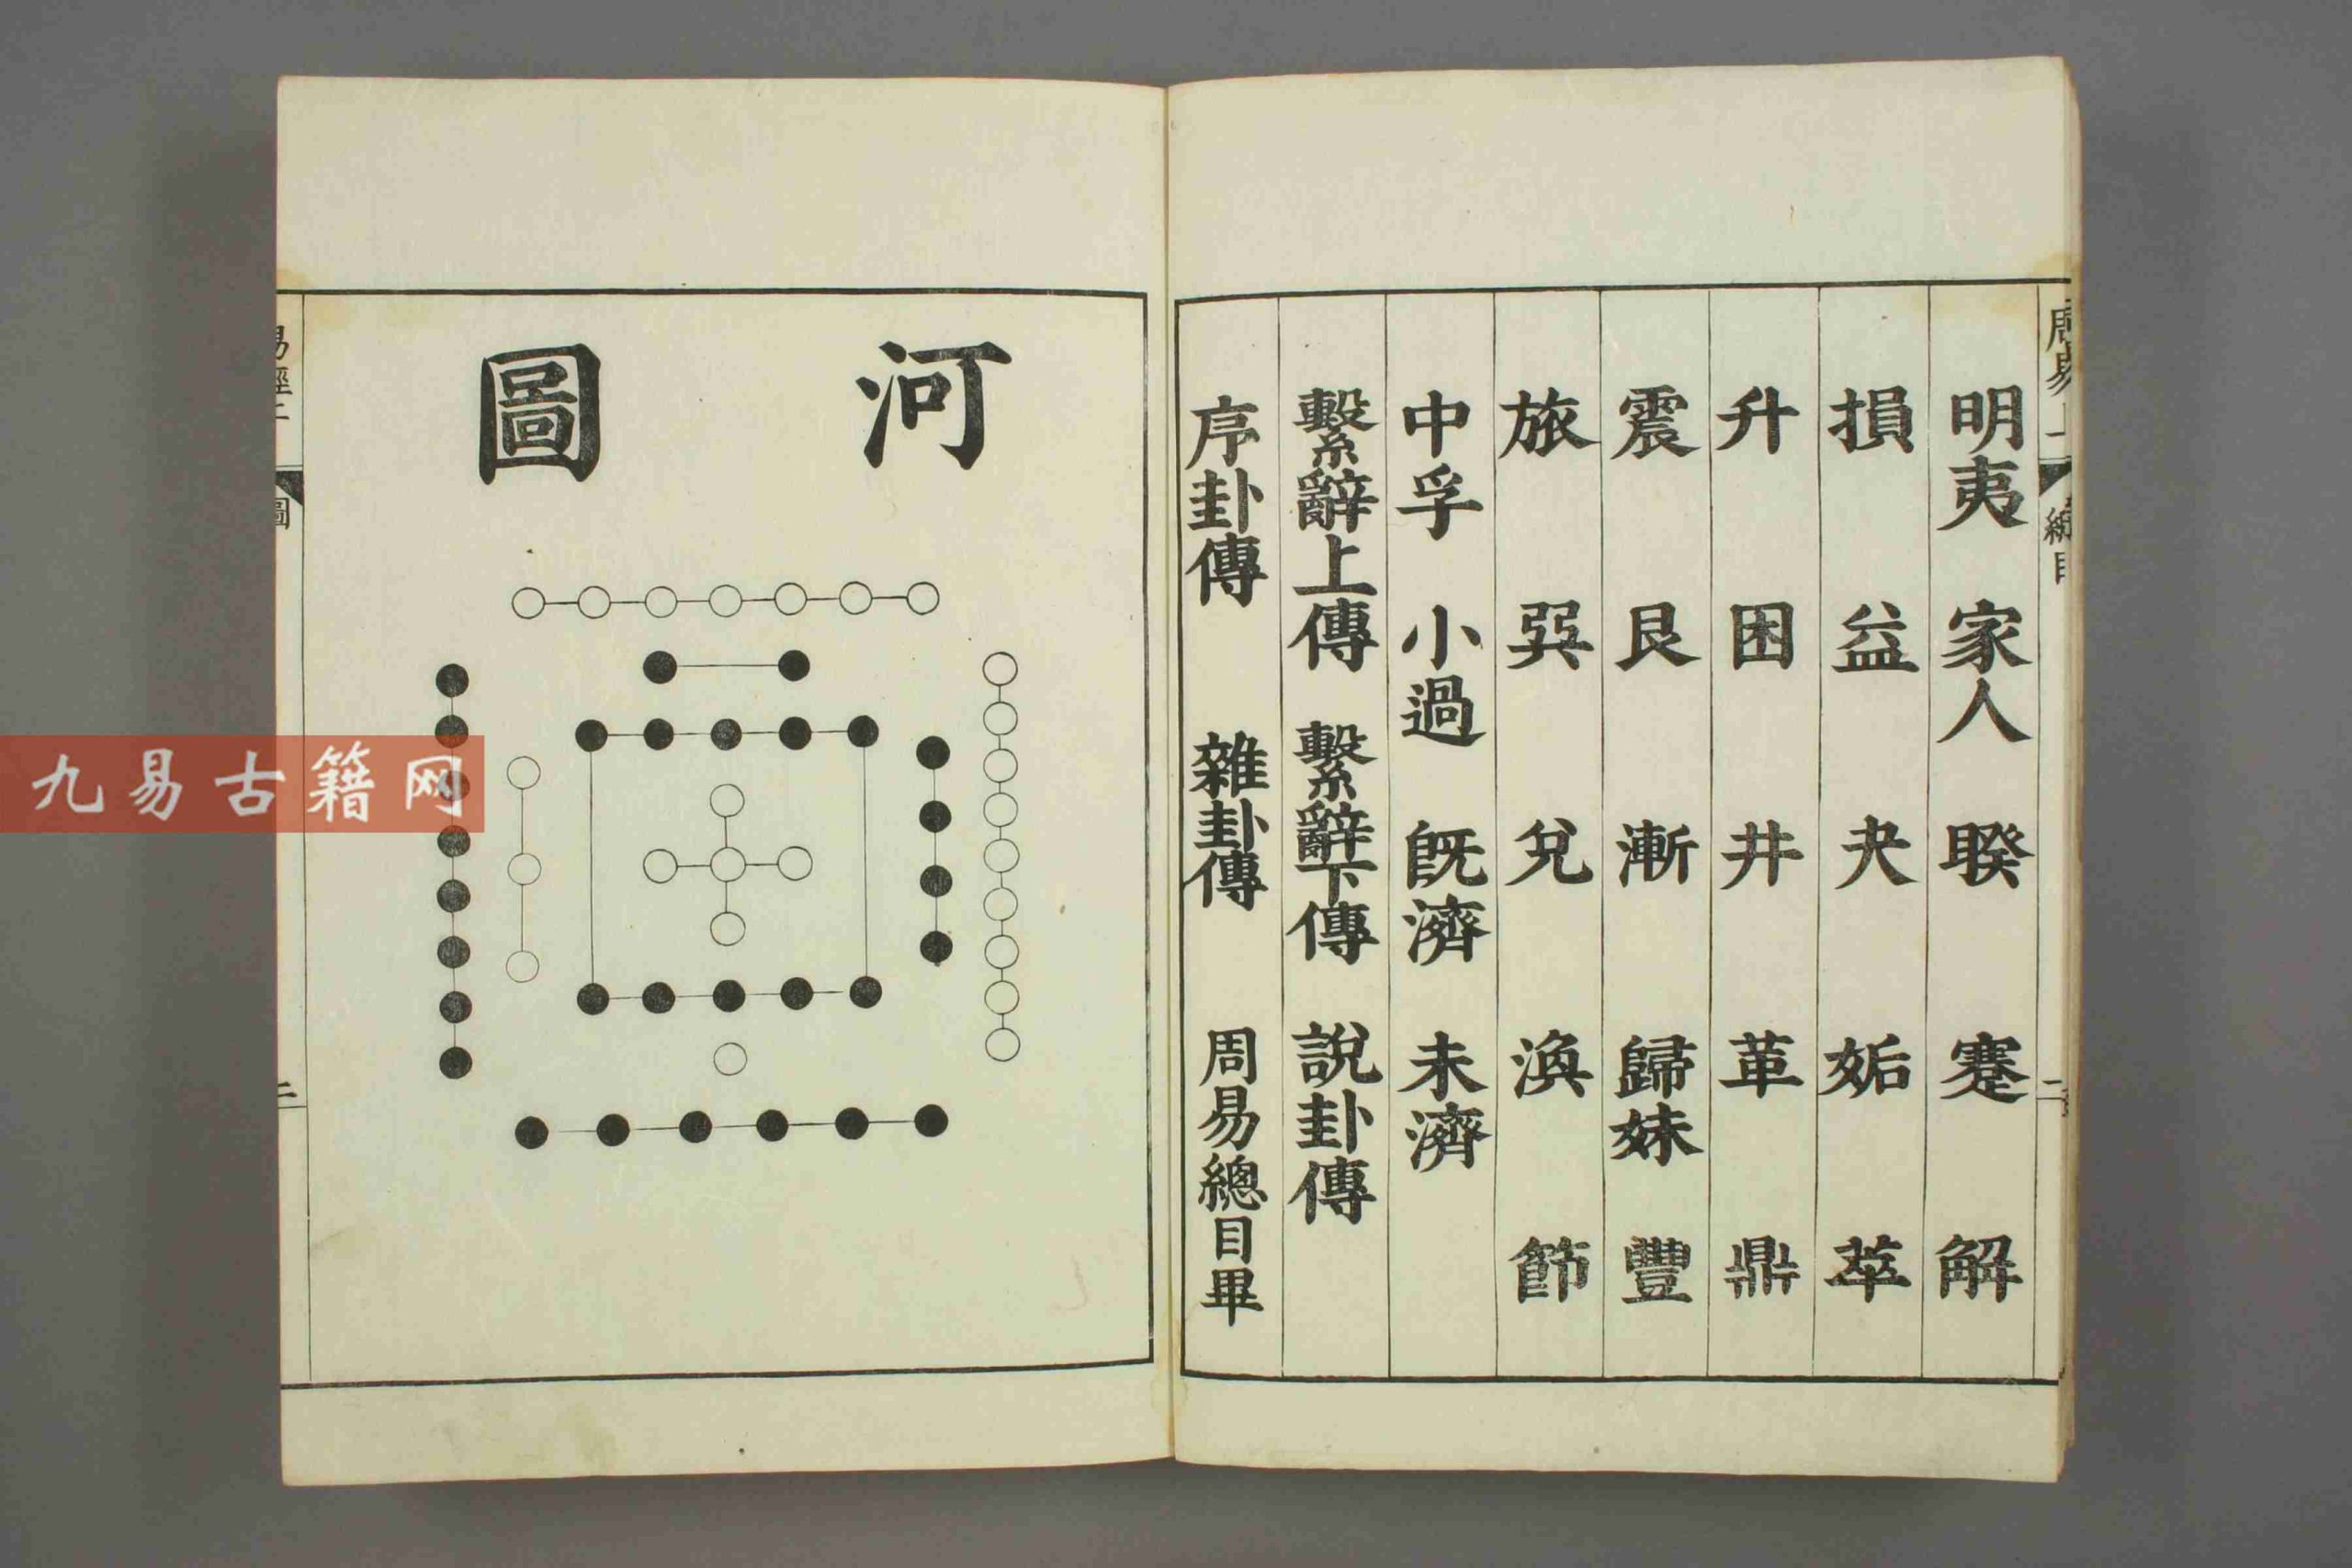 明夷 家人 睽 蹇 解
損 益 夬 姤 萃
升 困 井 革 鼎
震 艮 漸 歸妹 豐
旅 巽 兌 渙 節
中孚 小過 既濟 未濟
繫辭上傳 繫辭下傳 說卦傳
序卦傳 雜卦傳 周易總目畢
河圖
圖
二
九易古籍网